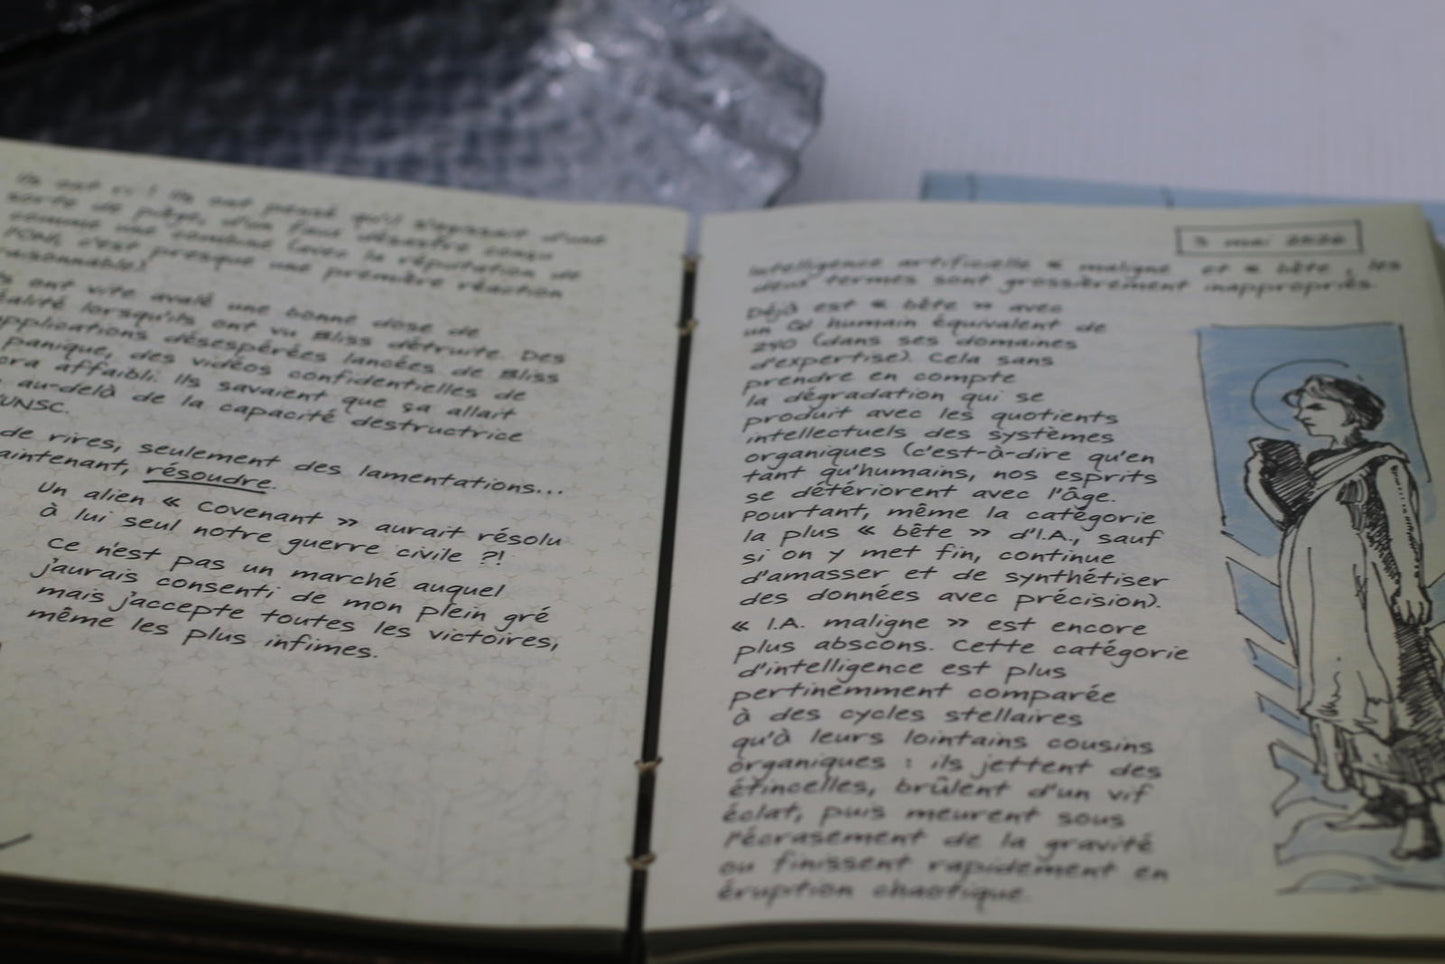 Ils ont ri ! Ils ont pensé qu'il s'agissait d'une
sorte de piège, d'un faux désastre conçu
comme une combine (avec la réputation de
l'ONI, c'est presque une première réaction
raisonnable)
ont vite avalé une bonne dose de
lorsqu'ils ont vu Bliss détruite. Des
désespérées lancées de Bliss
panique, des vidéos confidentielles de
affaibli. Ils savaient que ça allait
au-delà de la capacité destructrice
UNSC.
de rires, seulement des lamentations...
résoudre.
Un alien « Covenant » aurait résolu
à lui seul notre guerre civile ?!
Ce n'est pas un marché auquel
j'aurais consenti de mon plein gré
mais j'accepte toutes les victoires,
même les plus infimes.
3 mai
Intelligence artificielle « maligne et « bête , les
deux termes sont grossièrement inappropriés.
Déjà est « bête » avec
un QI humain équivalent de
(dans ses domaines
d'expertise). Cela sans
prendre en compte
la dégradation qui se
produit avec les quotients
intellectuels des systèmes
organiques (c'est-à-dire qu'en
tant qu'humains, nos esprits
se détériorent avec l'âge.
Pourtant, même la catégorie
la plus « bête » d'I.A., sauf
si on y met fin, continue
d'amasser et de synthétiser
des données avec précision).
« I.A. maligne » est encore
plus abscons. Cette catégorie
d'intelligence est plus
pertinemment comparée
à des cycles stellaires
qu'à leurs lointains cousins
organiques : ils jettent des
étincelles, brûlent d'un vif
éclat, puis meurent sous
l'écrasement de la gravité
ou finissent rapidement en
éruption chaotique.